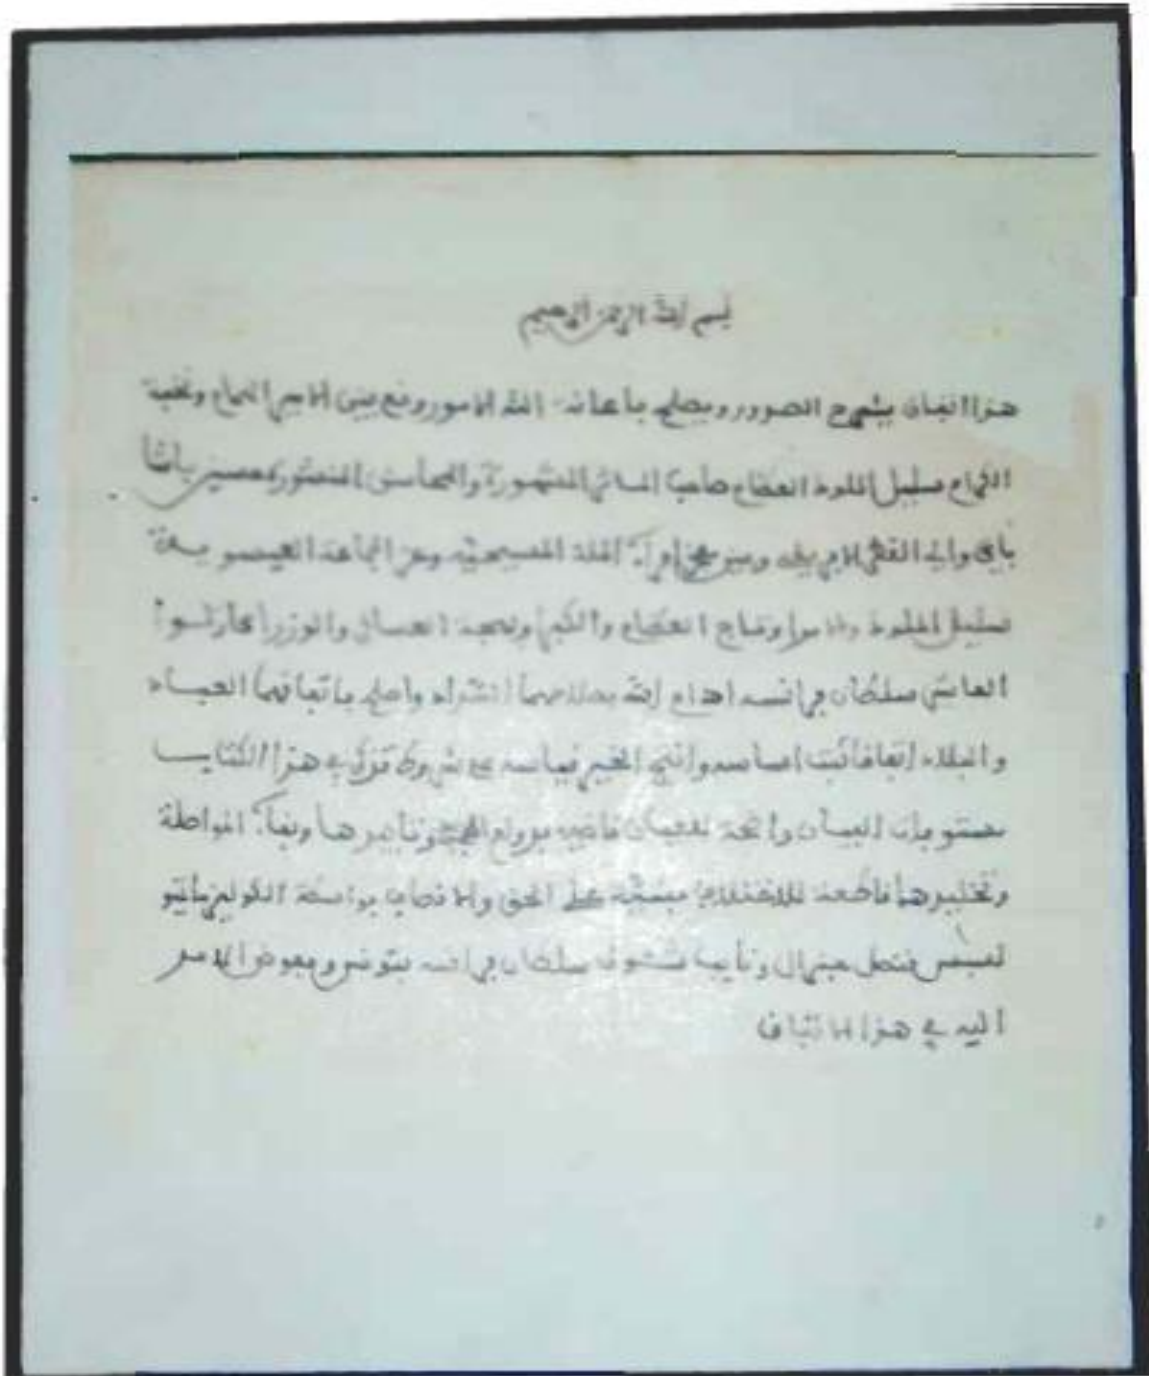 بسم الله الرحمن الرحيم
هذا اتفاق يشرح الصدور ويصلح باعانة الله الامور وقع بين الامير الهمام ونخبة
الكرام سليل الملوك العظام صاحب المآثر المشهورة والمحاسن المنشورة حسين باشا
باي والي القطر الافريقي وبين الملة المسيحية وعز الجماعة العيسوية
سليل الملوك وتاج العظام والكبراء والوزرا كارلوا
العاشر سلطان فرانسه ادام الله واصلح باتفاقهما العباد
والبلاد اتفاقا ثبت اساسه وانتج الخير قياسه على شروط تذكر في هذا الكتاب
البيان واضحة للعيان قاضية بدوام المحبة وتأبيدها وبقاء المواصلة
وتخليدها قاطعة للاختلاف مبنية على الحق والانصاف بواسطة ماتيو
لسبس قنصل جنرال ونايب سلطان فرانسه بتونس ومفوض الامر
اليه في هذا الاتفاق